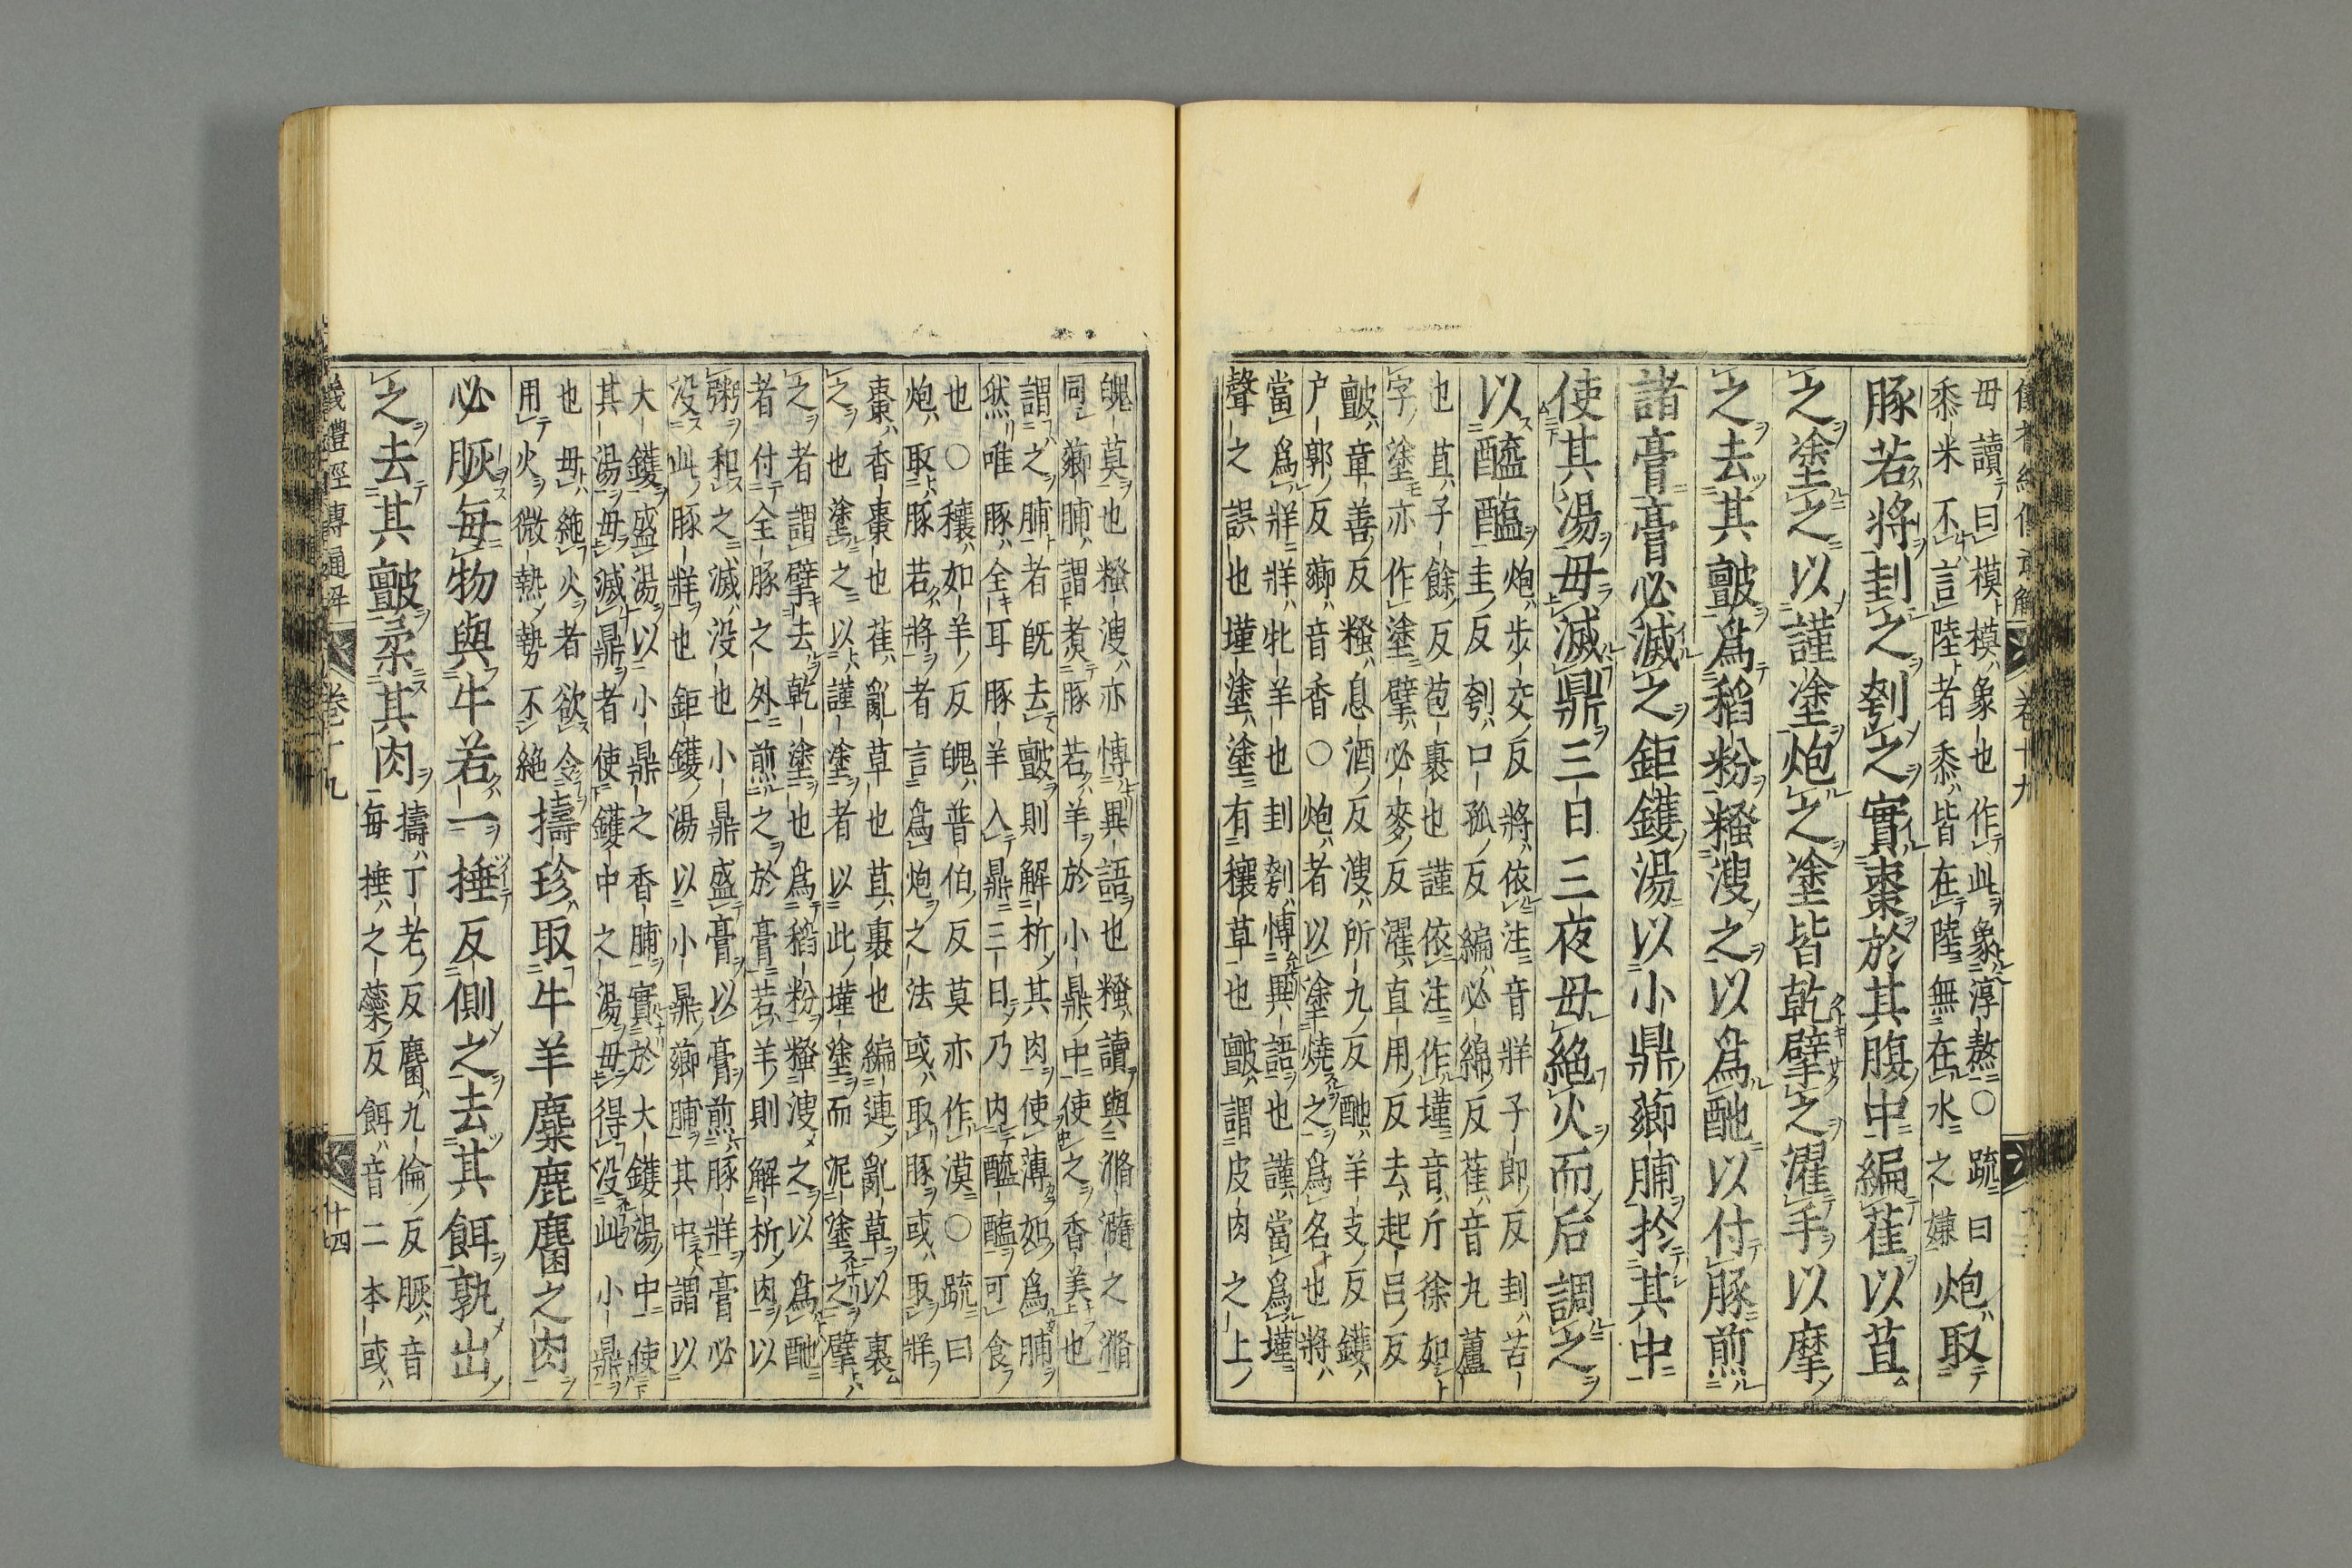 毋讀曰模模象也作此象淳熬○疏曰
黍米不言陸者黍皆在陸無在水之嫌
炮取
豚若將刲之刳之實棗於其腹中編萑以苴
之塗之以謹塗炮之塗皆乾擘之濯手以摩
之去其皽爲稻粉糔溲之以爲酏以付豚煎
諸膏膏必滅之鉅鑊湯以小鼎薌脯於其中
使其湯毋滅鼎三日三夜毋絶火而后調之
以醯醢
炮步交反將依注音牂子郎反刲苦
圭反刳口孤反編必綿反萑音丸蘆
也苴子餘反苞裹也謹依注作墐音斤徐如
字塗亦作塗擘必麥反濯直用反去起呂反
皽章善反糔息酒反溲所九反酏羊支反鑊
户郭反薌音香○炮者以塗燒之爲名也將
當爲牂牂牝羊也刲刳博異語也謹當爲墐
聲之誤也墐塗塗有穰草也皽謂皮肉之上
魄莫也糔溲亦博異語也糔讀與滫瀡之滫
同薌脯謂煑豚若羊於小鼎中使之香美也
謂之脯者既去皽則解析其肉使薄如爲脯
然唯豚全耳豚羊入鼎三日乃内醯醢可食
也○穰如羊反魄普伯反莫亦作漠○疏曰
炮取豚若將者言爲炮之法或取豚或取牂
棗香棗也萑亂草也苴裹也編連亂草以裹
之也塗之以謹塗者以此墐塗而泥塗之擘
之者謂擘去乾塗也爲稻粉糔溲之以爲酏
者付全豚之外煎之於膏若羊則解析肉以
粥和之滅没也小鼎盛膏以膏煎豚牂膏必
没此豚牂也鉅鑊湯以小鼎薌脯其中謂以
大鑊盛湯以小鼎之香脯實於大鑊湯中使
其湯毋滅鼎者使鑊中之湯毋得没此小鼎
也毋絶火者欲令
用火微熱勢不絶
擣珍取牛羊麋鹿麕之肉
必脄每物與牛若一捶反側之去其餌孰出
之去其皽柔其肉
擣丁老反麕九倫反脄音
每捶之蘂反餌音二本或
儀禮經傳通解 卷十九 十四